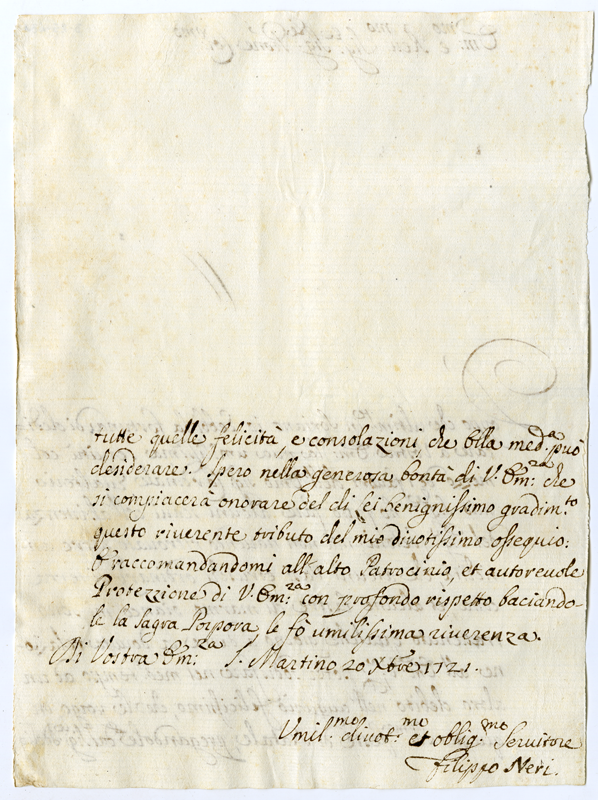 tutte quelle felicità, e consolazioni, che Ella med.a può
desiderare. Spero nella generosa bontà di V. Em.za che
si compiacerà onorare del di lei benignissimo gradim.to
questo riverente tributo del mio divotissimo ossequio:
E raccomandandomi all'alto Patrocinio, et autorevole
Protezzione di V. Em.za con profondo rispetto baciando-
le la Sagra Porpora, le fò umilissima riverenza.
Di Vostra Em.za S. Martino 20 Xbre 1721.
Umil.mo divot.mo et oblig.mo Servitore
Filippo Neri.